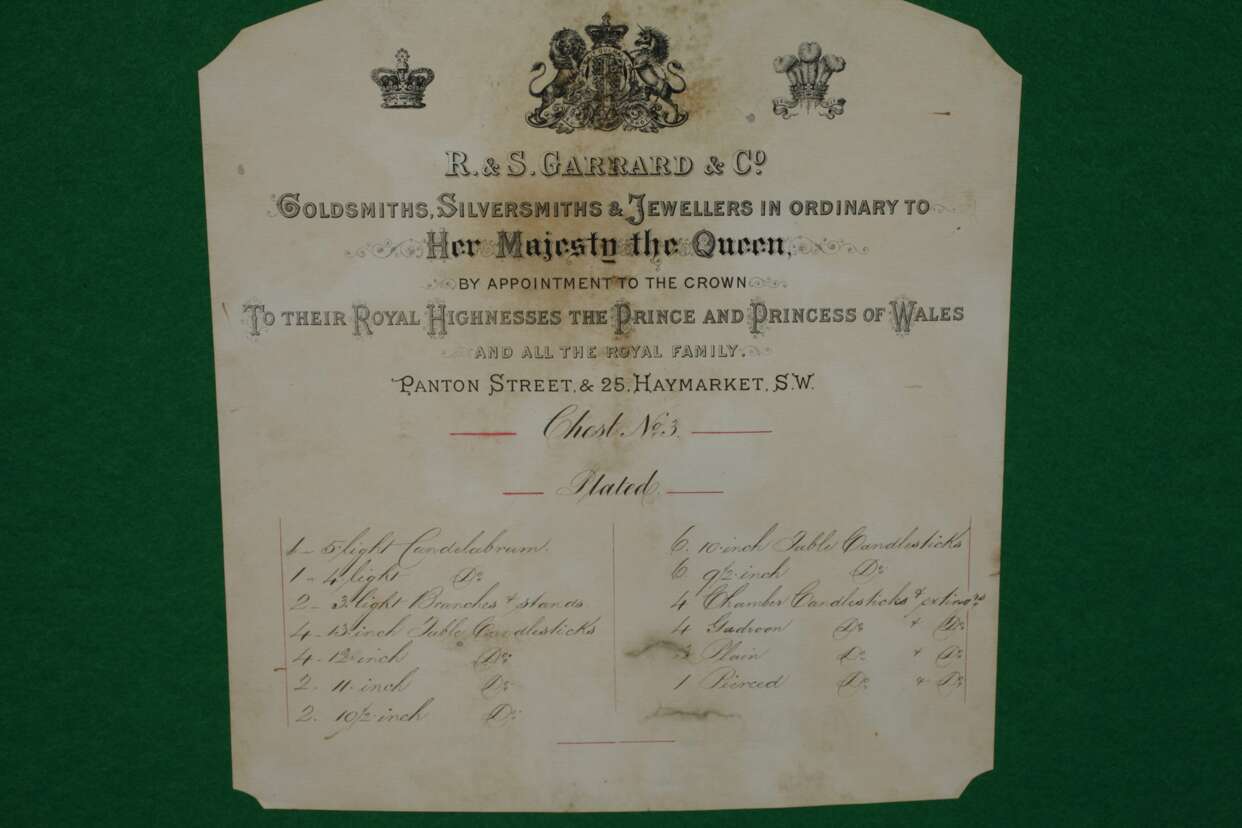 R. & S. GARRARD & Co.
GOLDSMITHS, SILVERSMITHS & JEWELLERS IN ORDINARY TO
Her Majesty the Queen,
BY APPOINTMENT TO THE CROWN
TO THEIR ROYAL HIGHNESSES THE PRINCE AND PRINCESS OF WALES
AND ALL THE ROYAL FAMILY.
PANTON STREET, & 25, HAYMARKET, S.W.
Chest No. 3.
Plated.
1 - 5 light Candelabrum.
1 - 4 light Do.
2 - 3 light Branches & stands
4 - 13 inch Table Candlesticks
4 - 12 inch Do.
2. 11 inch Do.
2. 10 1/2 inch Do.
6. 10 inch Table Candlesticks
6. 9 1/2 inch Do.
4 Chamber Candlesticks & extinors.
4 Gadroon Do. & Do.
3 Plain Do. & Do.
1 Pierced Do. & Do.